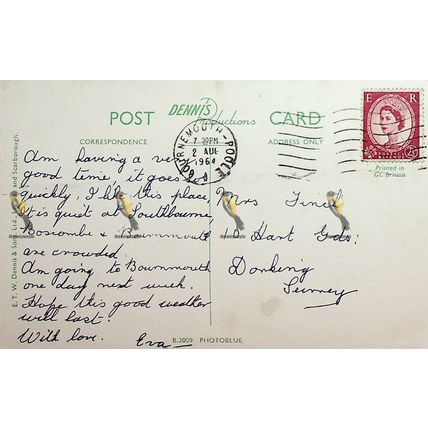 POST DENNIS Productions CARD
CORRESPONDENCE
ADDRESS ONLY
BOURNEMOUTH - POOLE
7 30PM
2 AUG
1964
E R
2½D
Printed in
Gt. Britain
Am having a very
good time, it goes
quickly, I like this place,
it is quiet at Southbourne
Boscombe & Bournmouth
are crowded.
Am going to Bournmouth
one day next week.
Hope this good weather
will last.
With love. Eva
Mrs Finch
10 Hart Gds.
Dorking
Surrey
E. T. W. Dennis & Sons Ltd., London and Scarborough.
B.2009 PHOTOBLUE